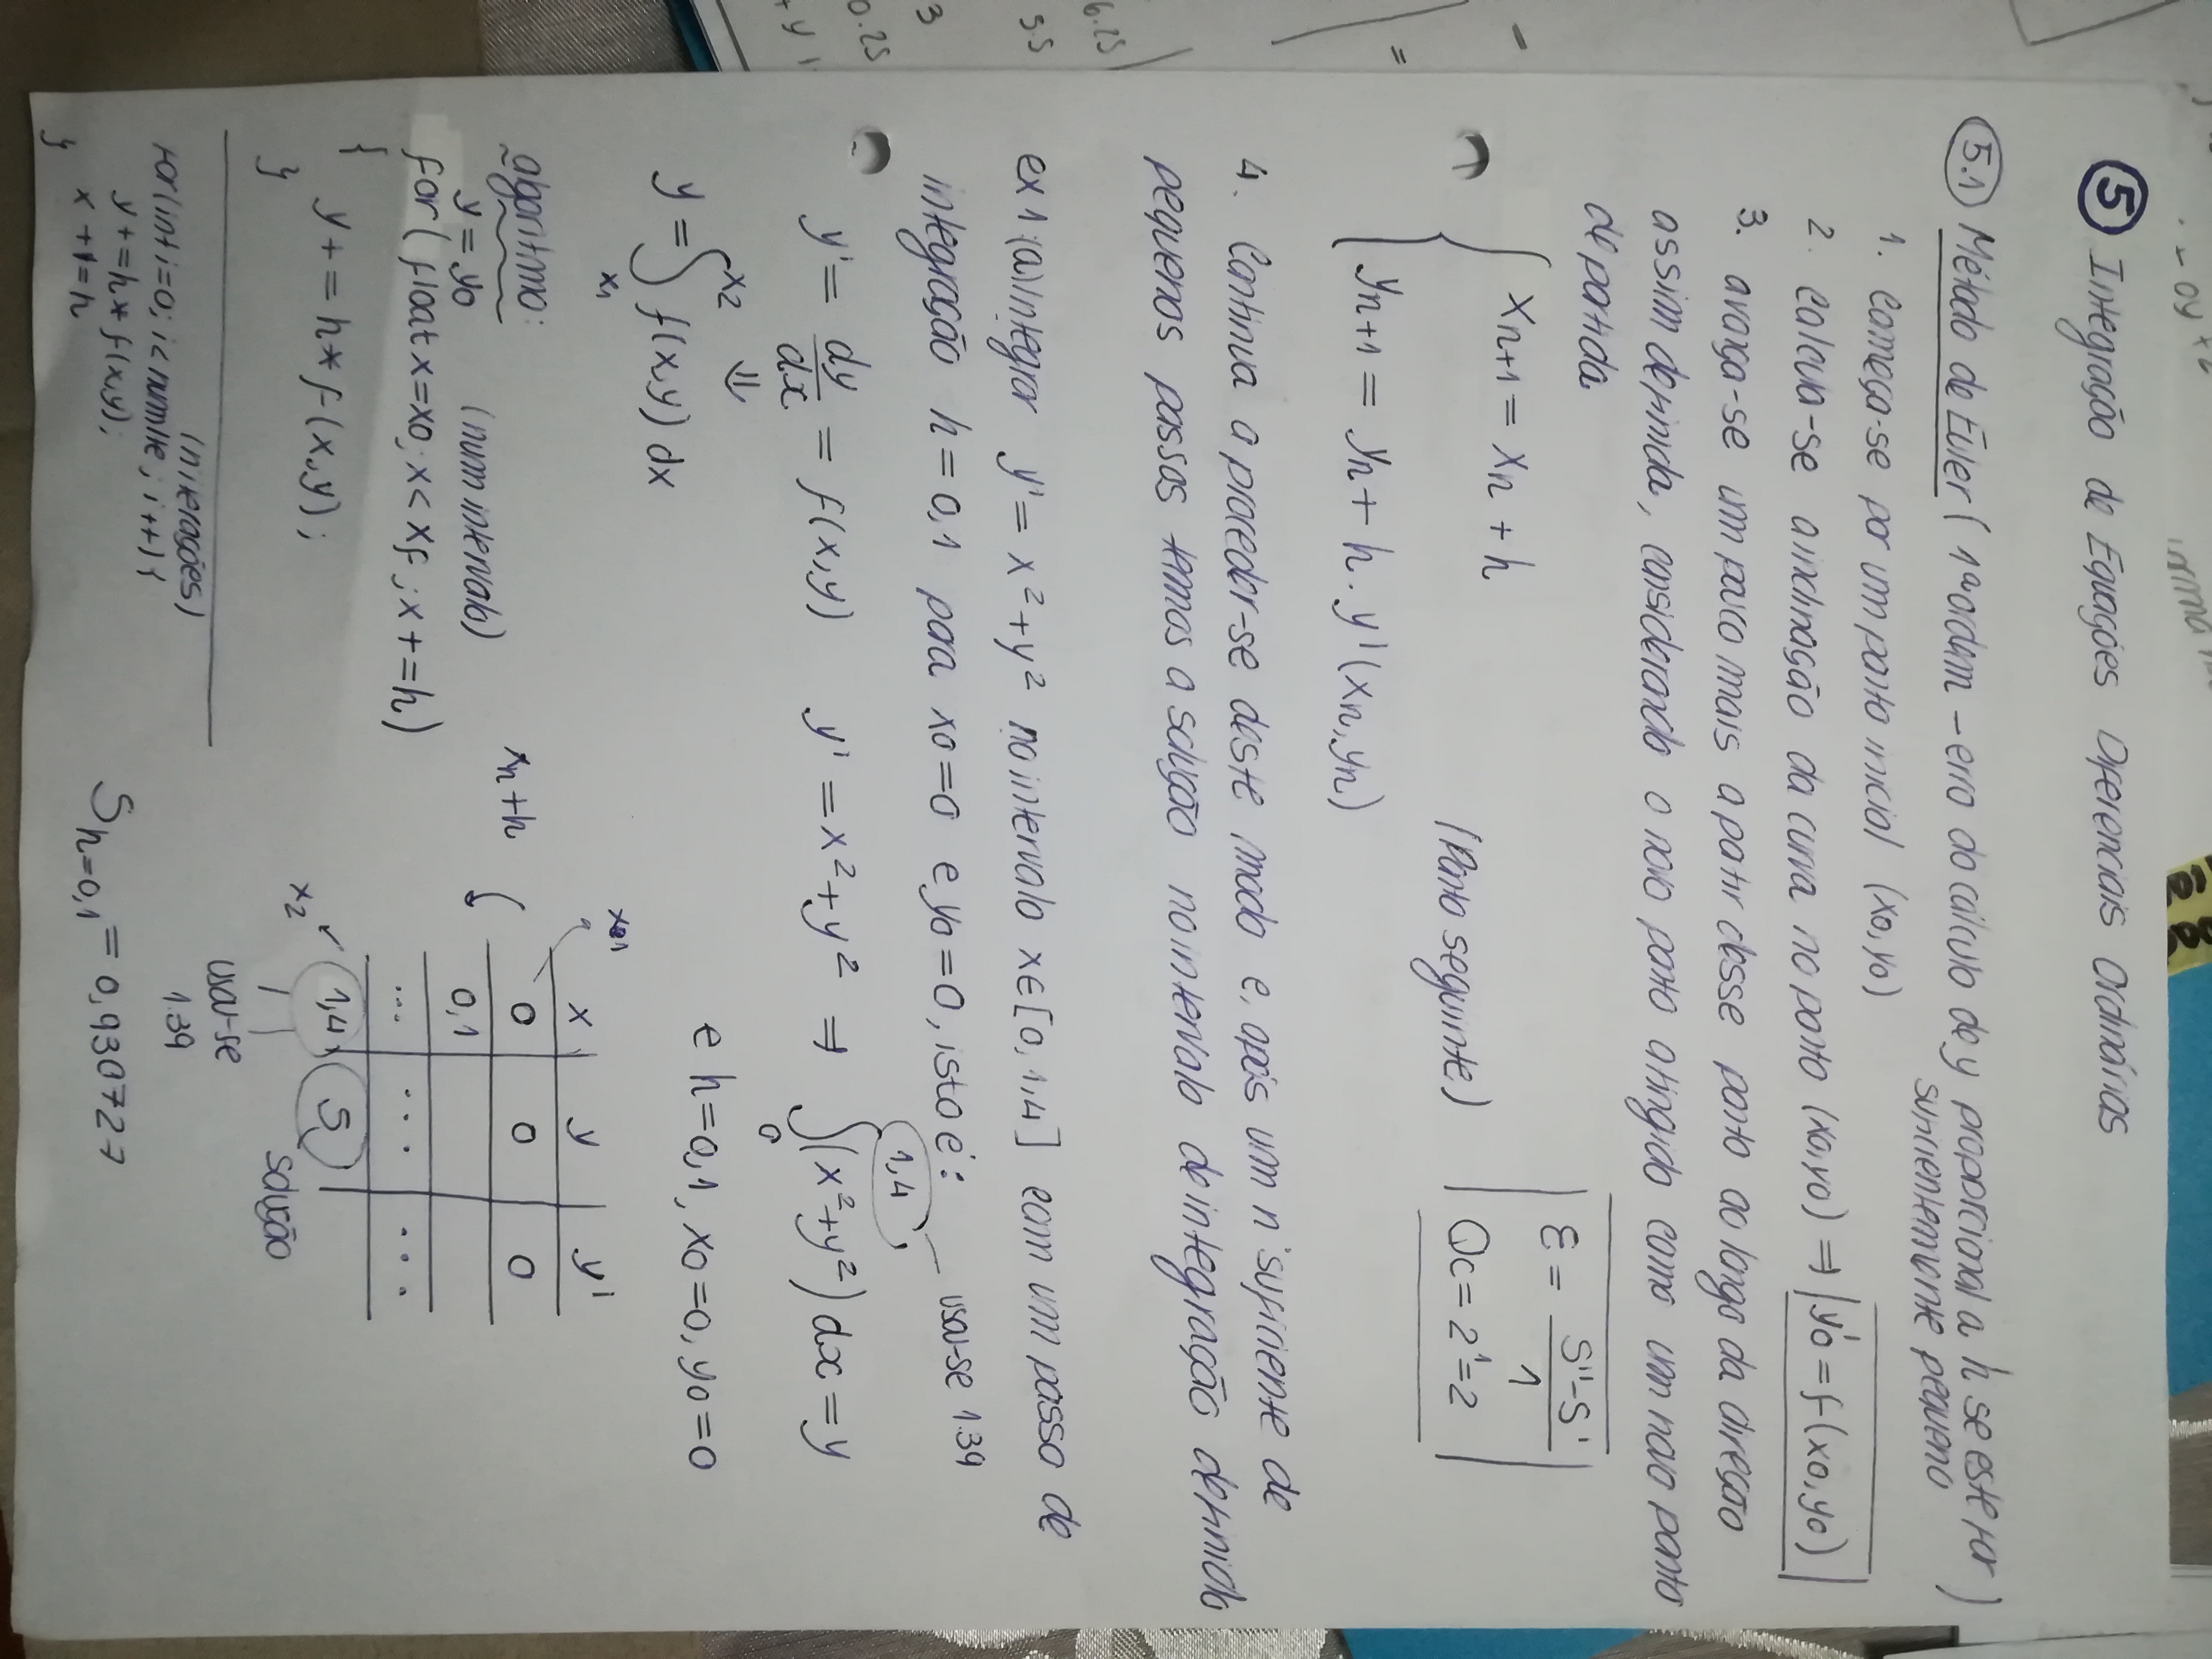 - 0y +2
5 Integração de Equações Diferenciais Ordinárias
5.1 Método de Euler ( 1ª ordem – erro do cálculo de y proporcional a h se este for )
suficientemente pequeno
1. Começa-se por um ponto inicial (x0, y0)
2. Calcula-se a inclinação da curva no ponto (x0, y0) ⇒ y'0 = f(x0, y0)
3. avança-se um pouco mais a patir desse ponto ao longo da direção
assim definida, considerando o novo ponto atingido como um novo ponto
de partida
xn+1 = xn + h
yn+1 = yn + h . y'(xn, yn)
(Ponto seguinte)
ε = S''-S' / 1
Qc = 2¹ = 2
4. Continua a proceder-se deste modo e, após um nº suficiente de
pequenos passos temos a solução no intervalo de integração definido
ex 1 :(a) Integrar y' = x² + y² no intervalo x∈[0, 1,4] com um passo de
integração h = 0,1 para x0=0 e y0=0, isto é:
usar-se 1.39
y' = dy/dx = f(x,y) y' = x² + y² ⇒ ∫ 0 1,4 (x²+y²) dx = y
⇓
y = ∫ x1 x2 f(x,y) dx
e h=0,1, x0=0, y0=0
x y y'
xn+h
0 0 0
0,1
... ... ...
1,4 S
x2
solução
usar-se
1.39
Sh=0,1 = 0,930727
algoritmo:
y = y0 (num intervalo)
for( float x=x0; x< xf ; x+=h)
{
y += h* f(x,y);
}
(n iterações)
for(int i=0; i< numIte ; i++) {
y+=h* f(x,y);
x +=h
}
6.25
5.5
3
0.25
+ y